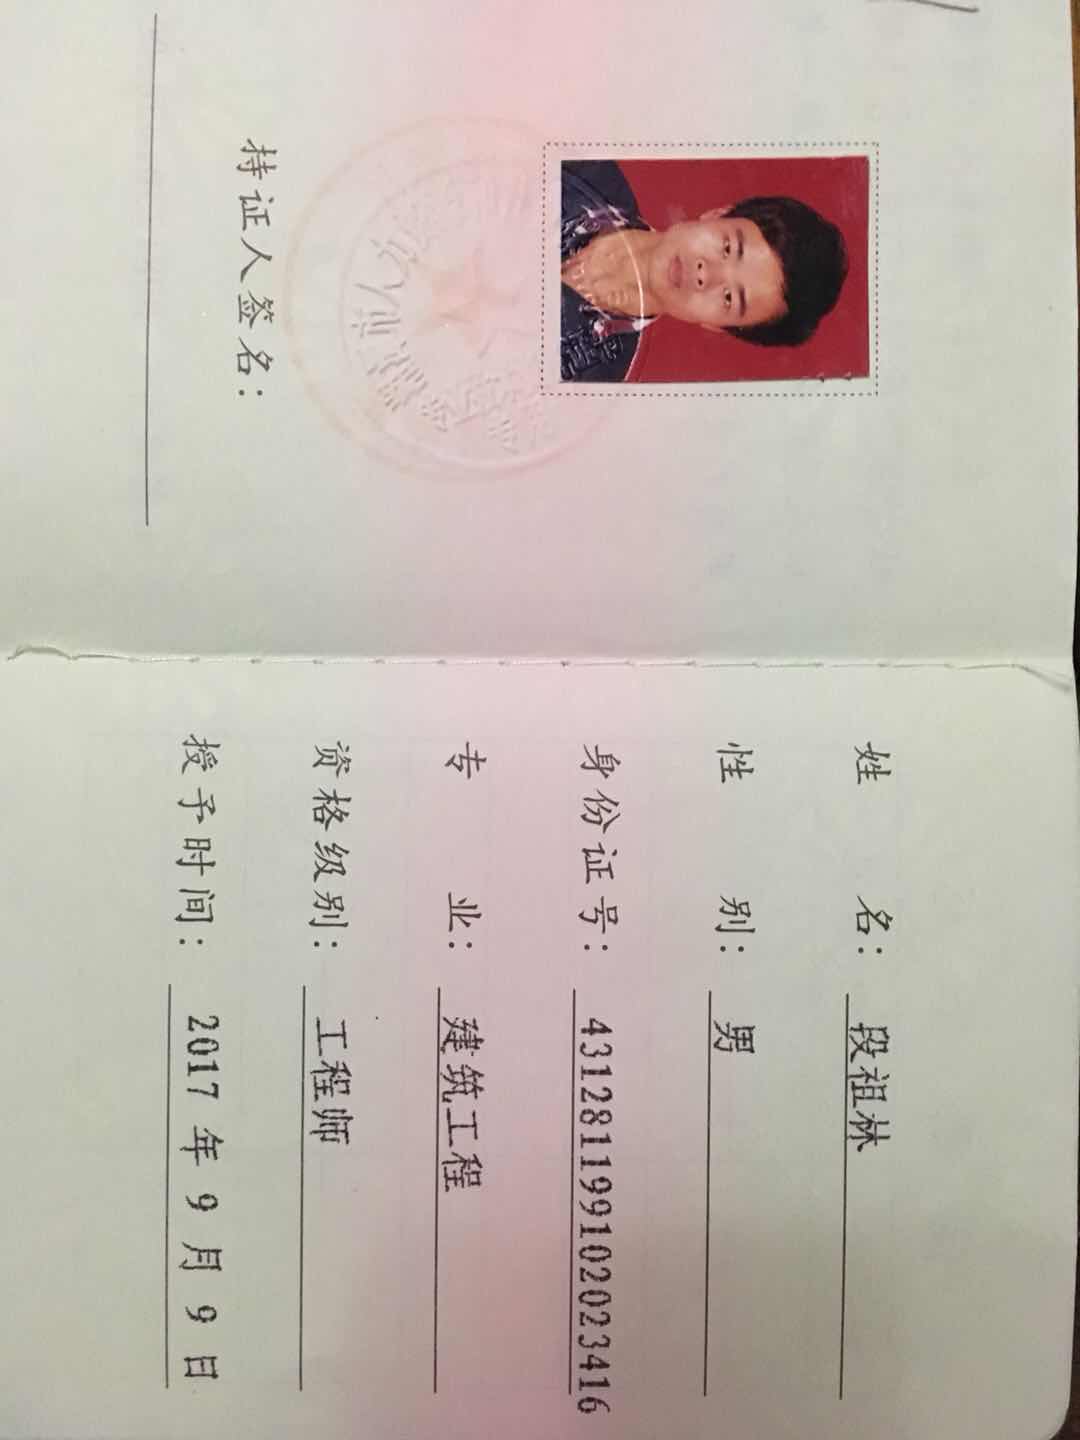 持证人签名：
姓名：段祖林
性别：男
身份证号：431281199102023416
专业：建筑工程
资格级别：工程师
授予时间：2017年9月9日